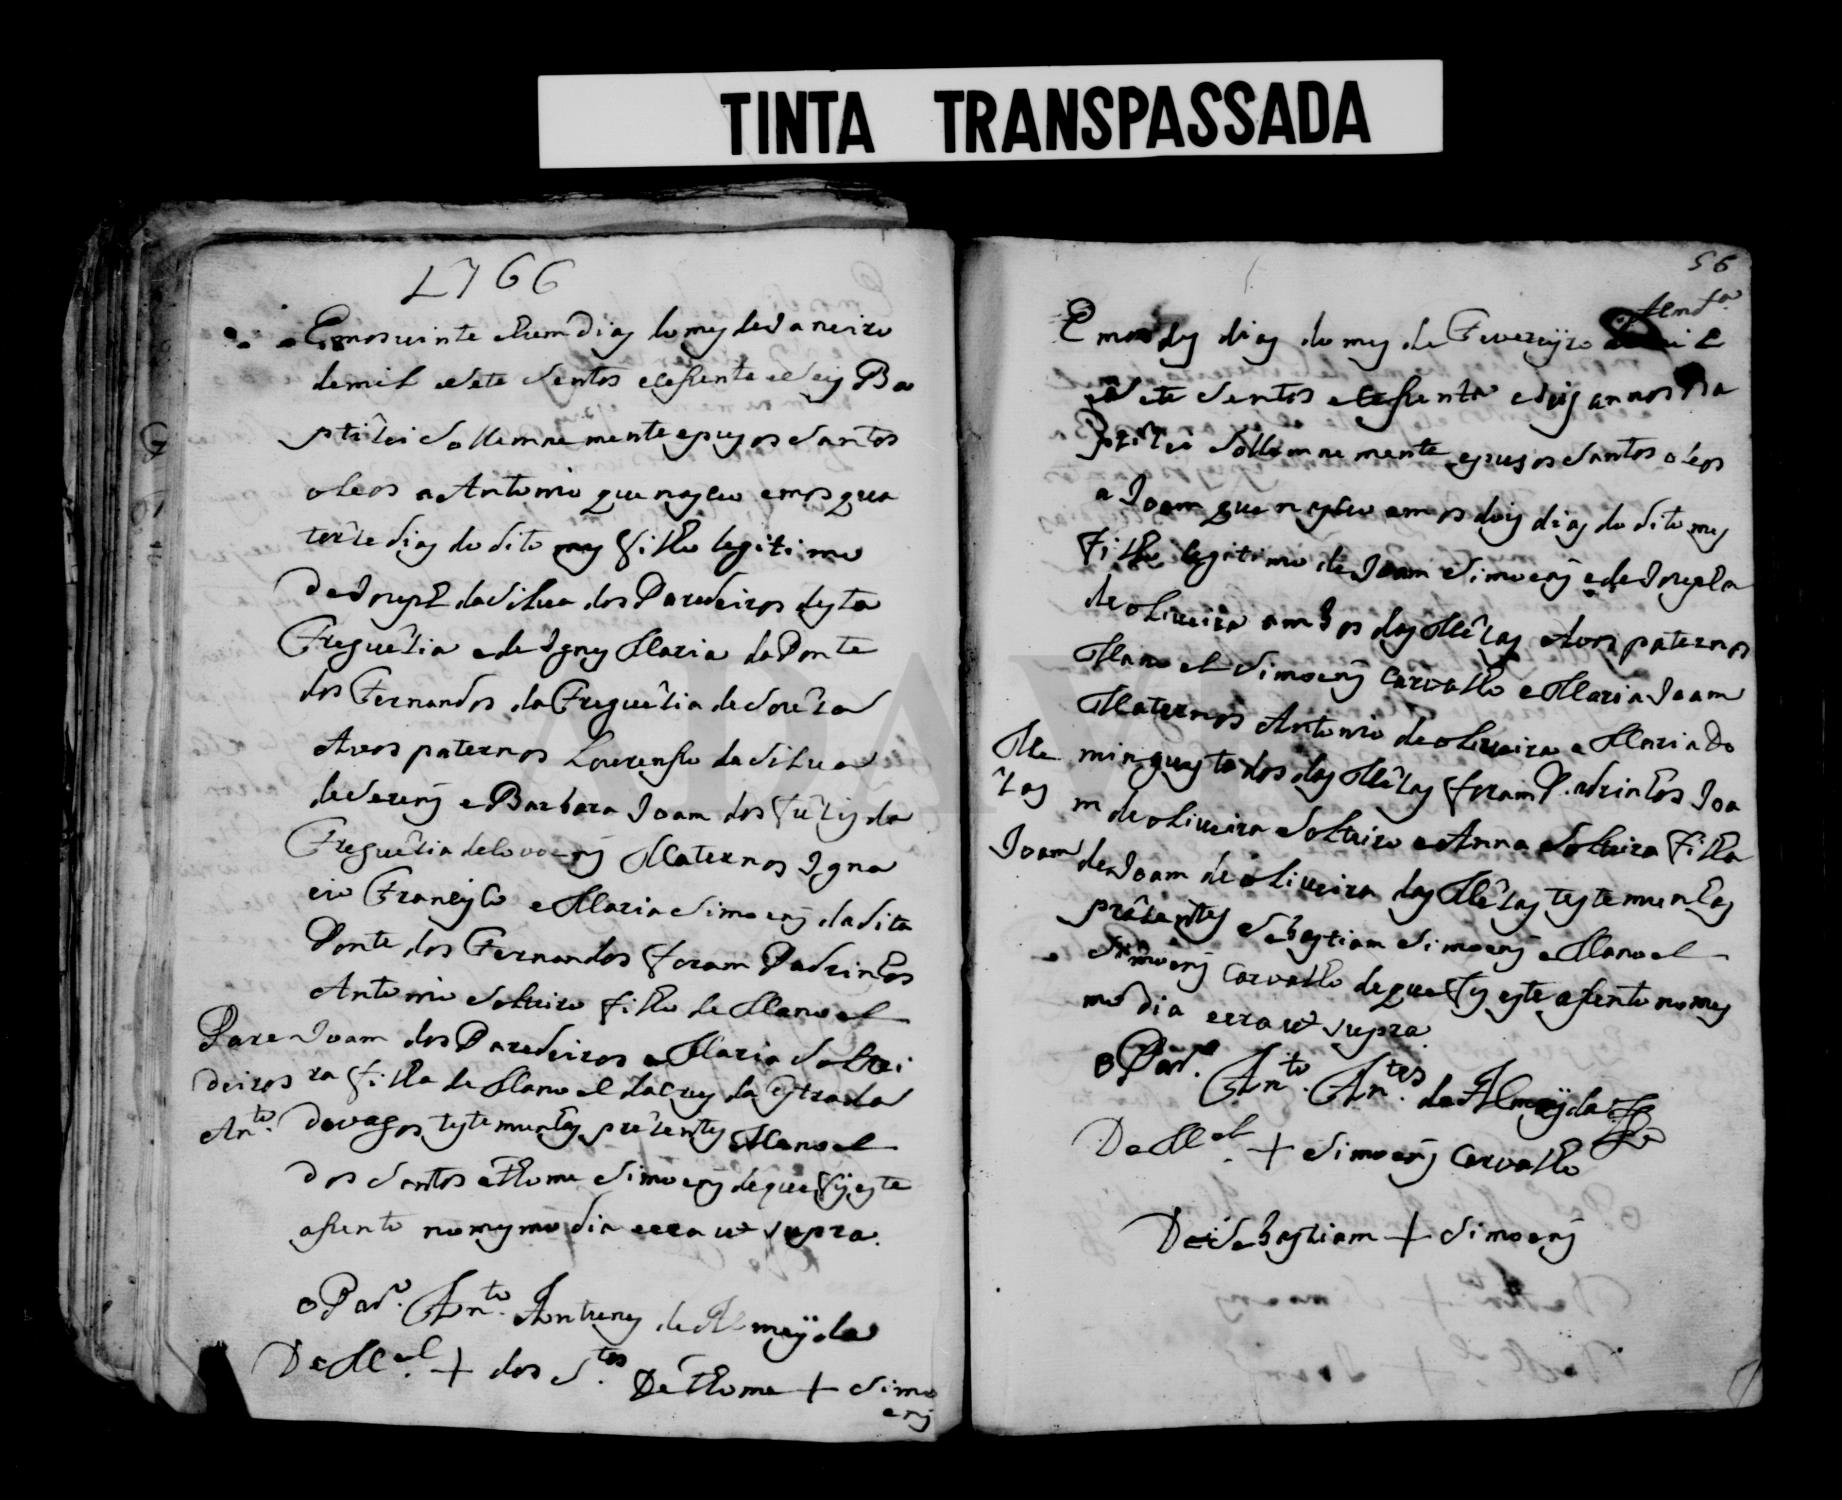 TINTA TRANSPASSADA
1766
Emos vinte ehum Dias do mes de Janeiro
de mil e Sete Sentos e cesenta e Seis Ba
ptizei Sollemnemente e pus os Santos
oleos a Antonio que nasceo em os qua
torze dias do dito mes filho legitimo
De Joseph da Silva dos Paredeiros desta
Freguezia e de Ignes Maria da Ponte
dos Fernandos da Freguezia de Soùza
Avos paternos Lourenso da Silva
de e Barbara Joam dos da
Freguezia de Covoens Maternos Igna
cio Francisco e Maria Simoens da dita
Ponte dos Fernandos foram Padrinhos
Antonio Solteiro filho de Manoel
Pare Joam dos Paredeiros e Maria Soltei
deiros ra filha de Manoel da Crus da Estrada
Anto. De vagos testemunhas prezentes Manoel
Dos Santos e Thome Simoens de que fis este
asento no mesmo dia era ut supra.
O Pad.e Ant.o Antunes de Almeyda
De M.el + dos S.tos De Thome + Simo
ens
56
Emos des dias do mes de Fevereyro mil
e Sete Sentos e cesenta e seis annos Ba
ptizei Sollemnemente e pus os Santos oleos
a Joam que nasceo em os dois dias do dito mes
Filho legitimo de Joam Simoens e de Josepha
de oliveira ambos das Mêzas Avos paternos
Manoel Simoens Carvalho e Maria Joam
Maternos Antonio de oliveira e Maria Do
Me mingues todos das Mêzas foram Padrinhos Joa
zas m de oliveira Solteiro e Anna Solteira Filha
Joam de Joam de oliveira das Mêzas testemunhas
prezentes Sebastiam Simoens e Manoel
Simoens Carvalho de que fis este asento no mes
mo dia era ut supra.
O Pad.e Ant.o An.tes de Almeyda
De M.el + Simoens Carvalho
De Sebastiam + Simoens